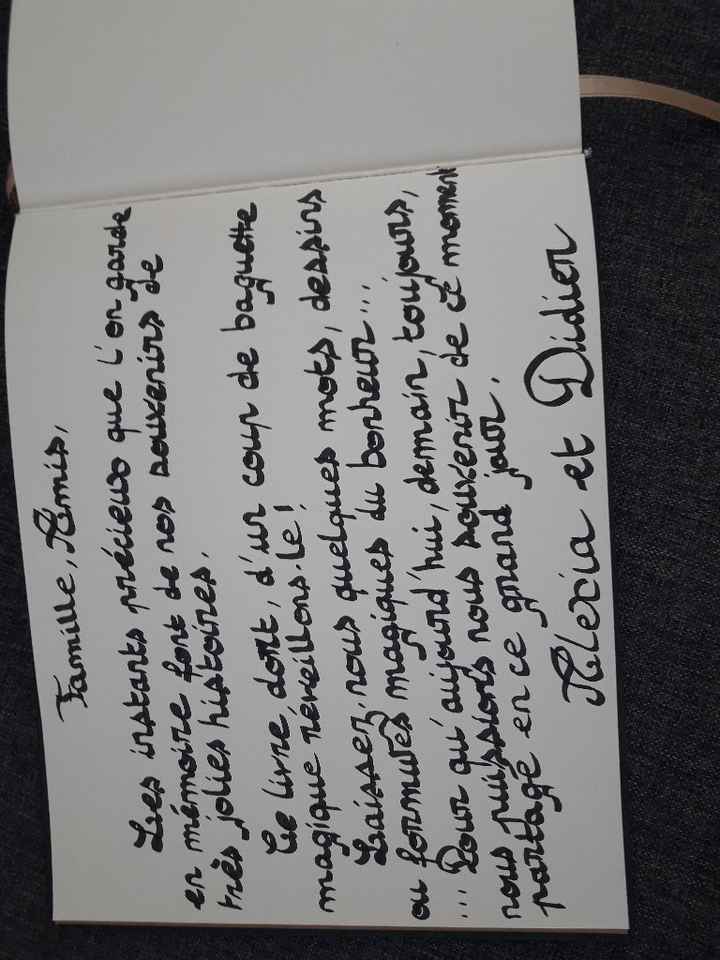 Famille, Amis,
Les instants précieux que l'on garde
en mémoire font de nos souvenirs de
très jolies histoires.
Ce livre dort, d'un coup de baguette
magique réveillons-le !
Laissez-nous quelques mots, dessins
ou formules magiques du bonheur...
... Pour qu'aujourd'hui, demain, toujours,
nous puissions nous souvenir de ce moment
partagé en ce grand jour.
Alexia et Didier